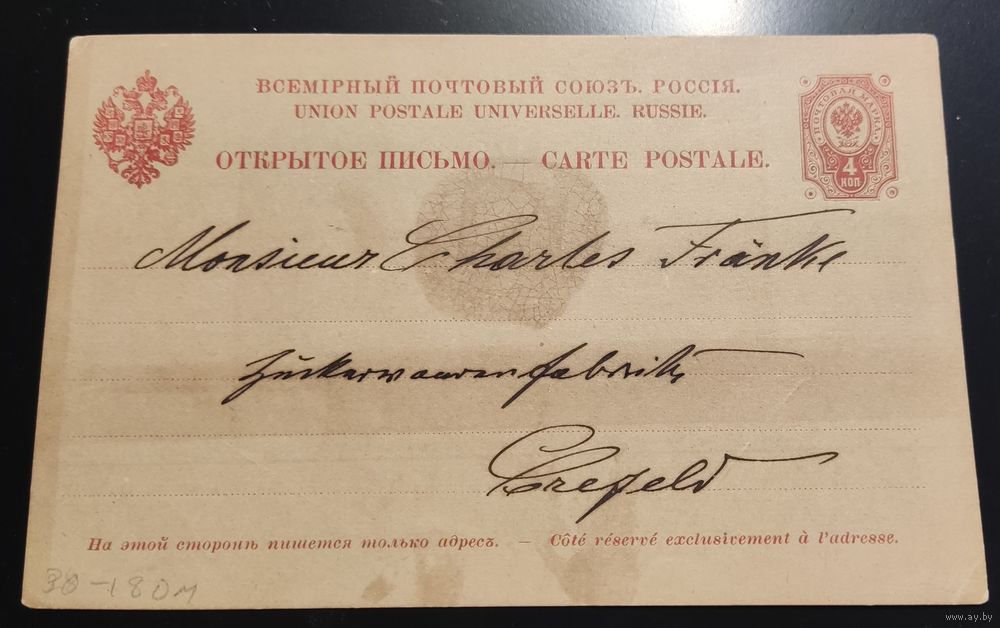 ВСЕМІРНЫЙ ПОЧТОВЫЙ СОЮЗЪ. РОССІЯ.
UNION POSTALE UNIVERSELLE. RUSSIE.
ОТКРЫТОЕ ПИСЬМО. — CARTE POSTALE.
ПОЧТОВАЯ МАРКА
4
КОП
Monsieur Charles Fränke
Zuckerwaarenfabrik
Crefeld
На этой сторонѣ пишется только адресъ. — Côté réservé exclusivement à l'adresse.
38 -180м
www.ay.by